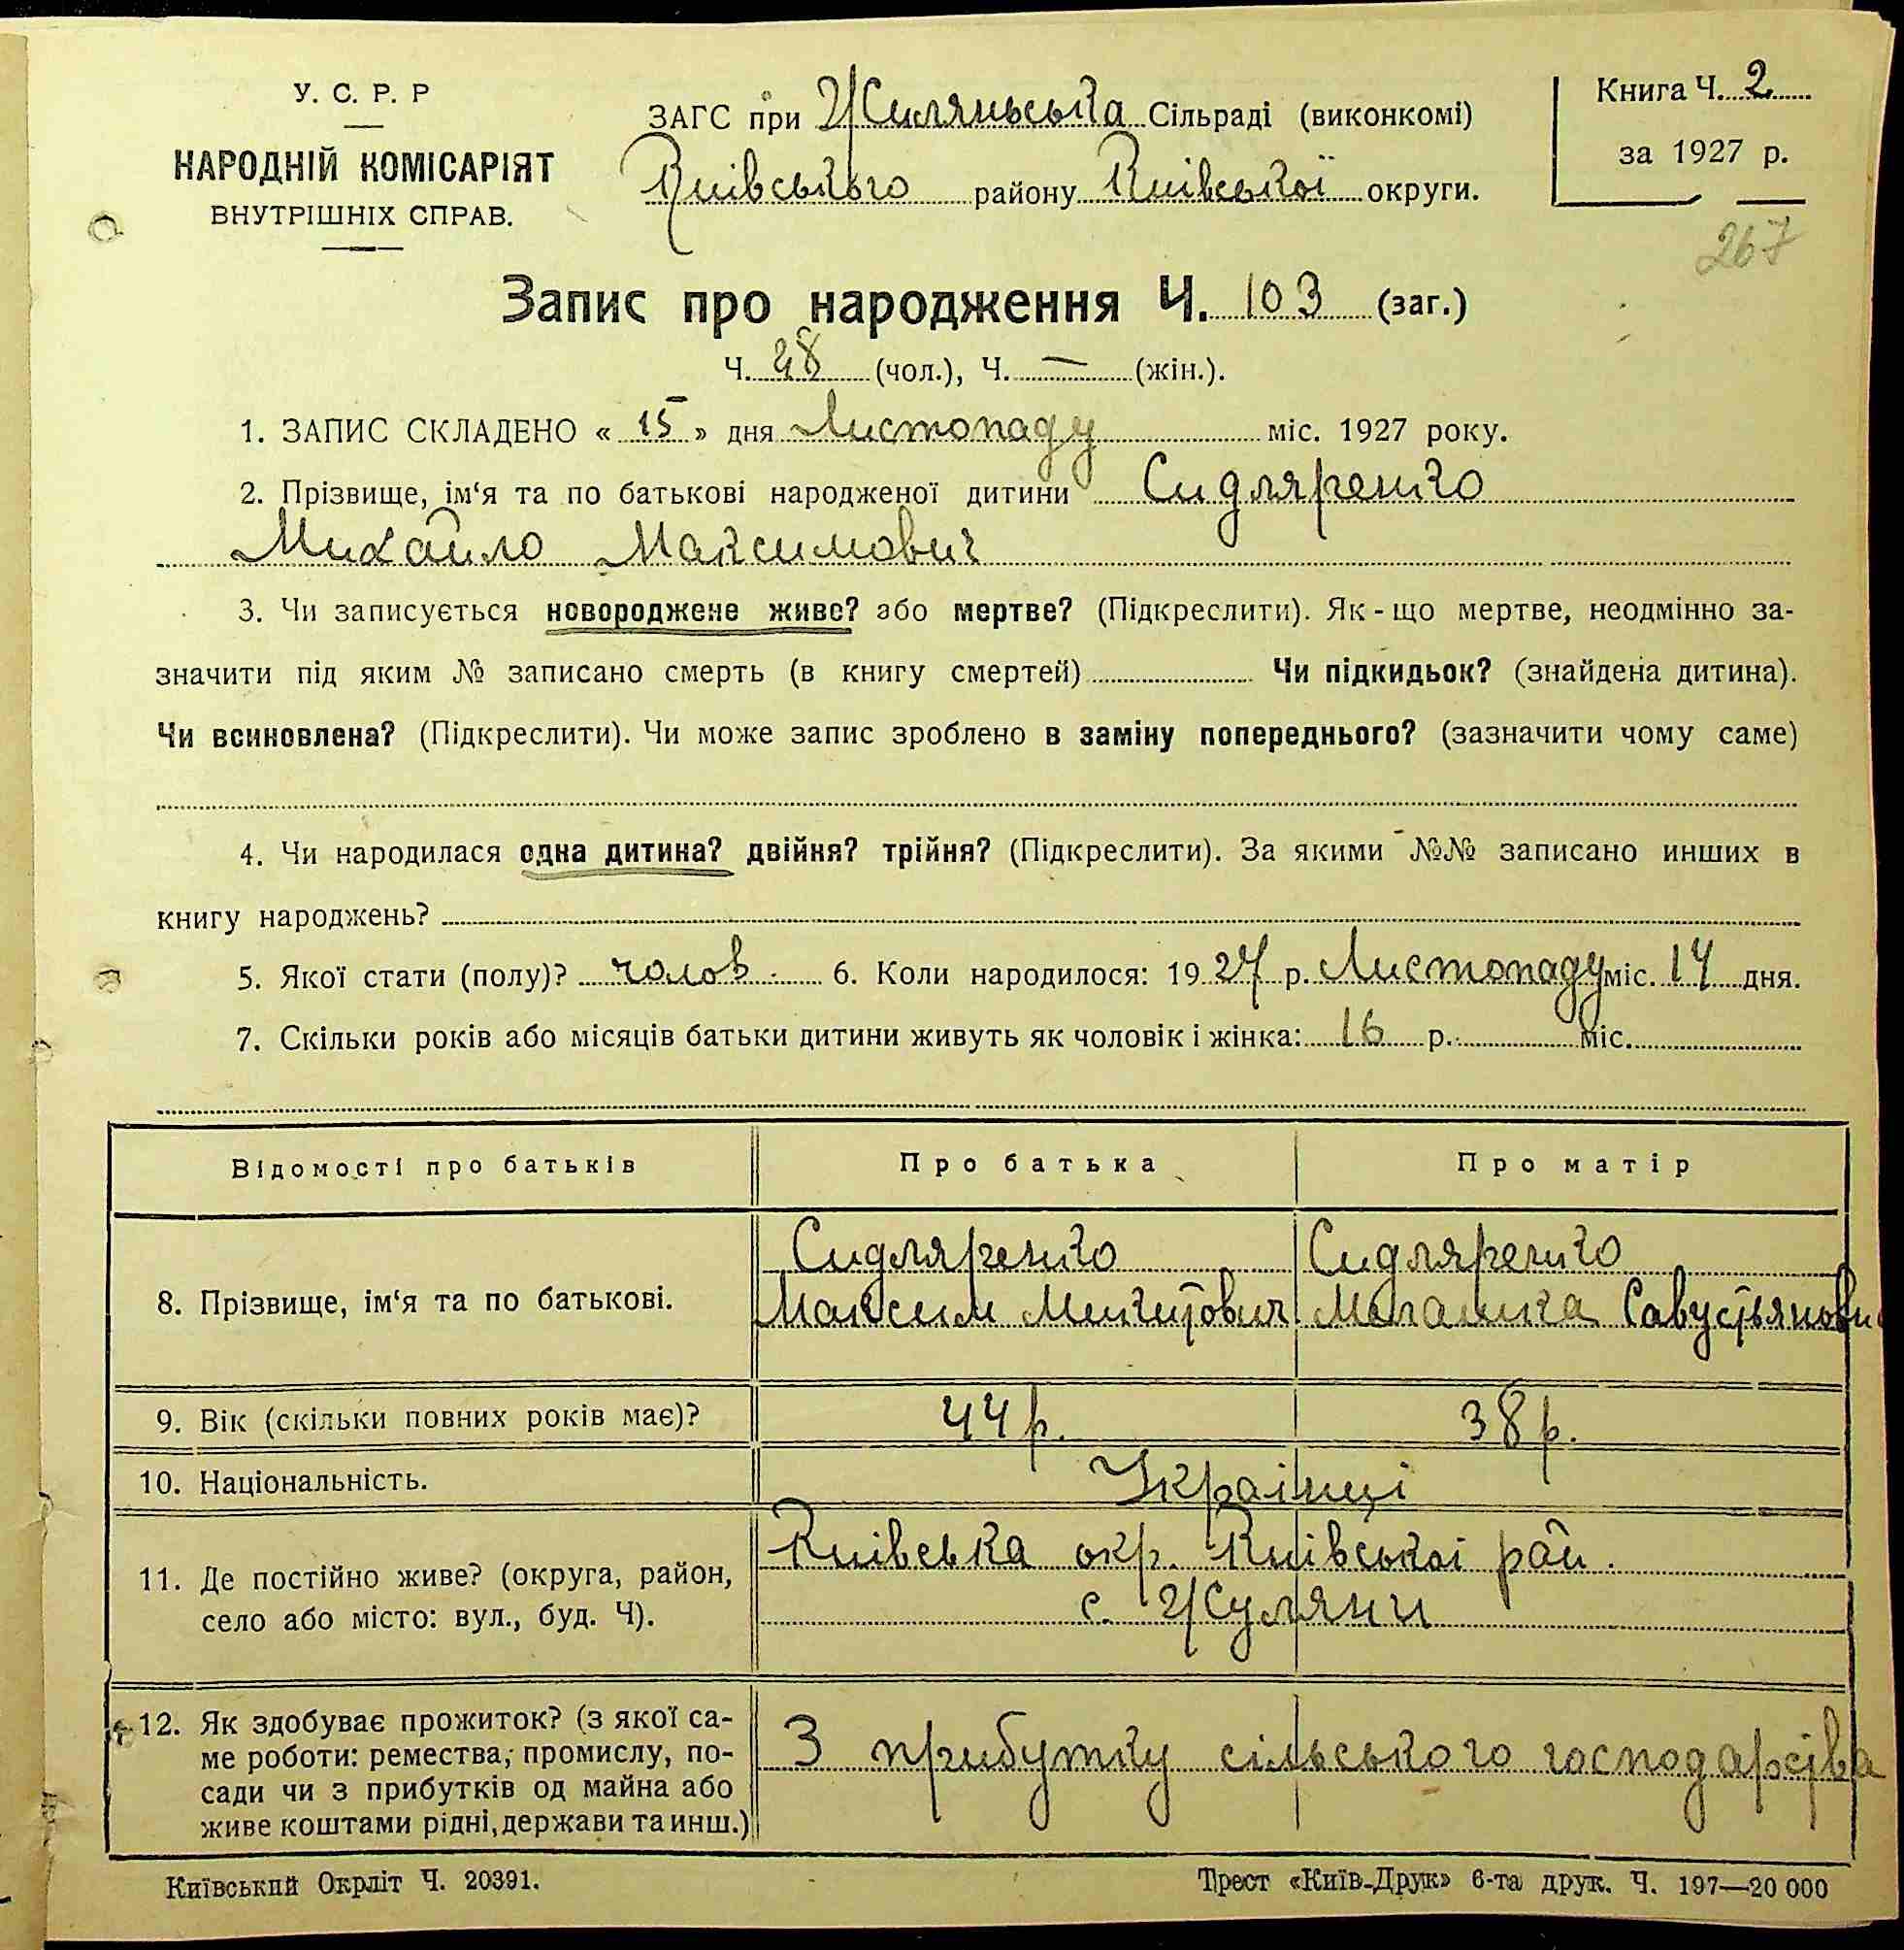 У. С. Р. Р
НАРОДНІЙ КОМІСАРІЯТ
ВНУТРІШНІХ СПРАВ.
ЗАГС при Жиляньська Сільраді (виконкомі)
Киівського району Киівської округи.
Книга Ч. 2
за 1927 р.
267
Запис про народження Ч. 103 (заг.)
Ч. 48 (чол.), Ч. — (жін.).
1. ЗАПИС СКЛАДЕНО « 15 » дня Листопаду міс. 1927 року.
2. Прізвище, ім‘я та по батькові народженої дитини Сидляренко
Михайло Максимович
3. Чи записується новороджене живе? або мертве? (Підкреслити). Як-що мертве, неодмінно за-
значити під яким № записано смерть (в книгу смертей) Чи підкидьок? (знайдена дитина).
Чи всиновлена? (Підкреслити). Чи може запис зроблено в заміну попереднього? (зазначити чому саме)
4. Чи народилася одна дитина? двійня? трійня? (Підкреслити). За якими №№ записано инших в
книгу народжень?
5. Якої стати (полу)? чолов. 6. Коли народилося: 1927 р. Листопаду міс. 14 дня.
7. Скільки років або місяців батьки дитини живуть як чоловік і жінка: 16 р. міс.
Відомості про батьків Про батька Про матір
8. Прізвище, ім‘я та по батькові.
Сидляренко Сидляренко
Максим Микитович Маланка
9. Вік (скільки повних років має)? 44 р. 38 р.
10. Національність. Украінці
11. Де постійно живе? (округа, район,
село або місто: вул., буд. Ч).
Киівська окр. Киівськоі рай.
с. Жуляни
12. Як здобуває прожиток? (з якої са-
ме роботи: ремества, промислу, по-
сади чи з прибутків од майна або
живе коштами рідні, держави та инш.)
З прибутку сільського господарства
Київський Окрліт Ч. 20391.
Трест «Київ-Друк» 6-та друк. Ч. 197—20 000